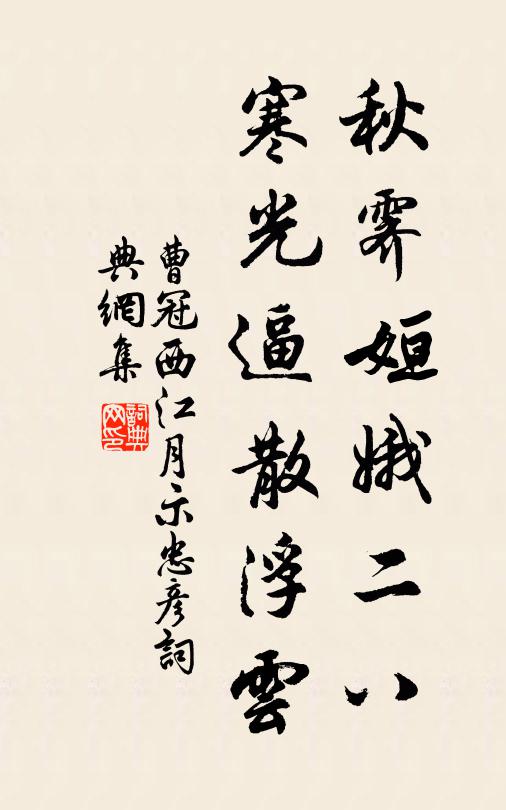 秋霽姮娥二八
寒光逼散浮雲
曹冠西江月示忠彦詞
典網集
詞典网印